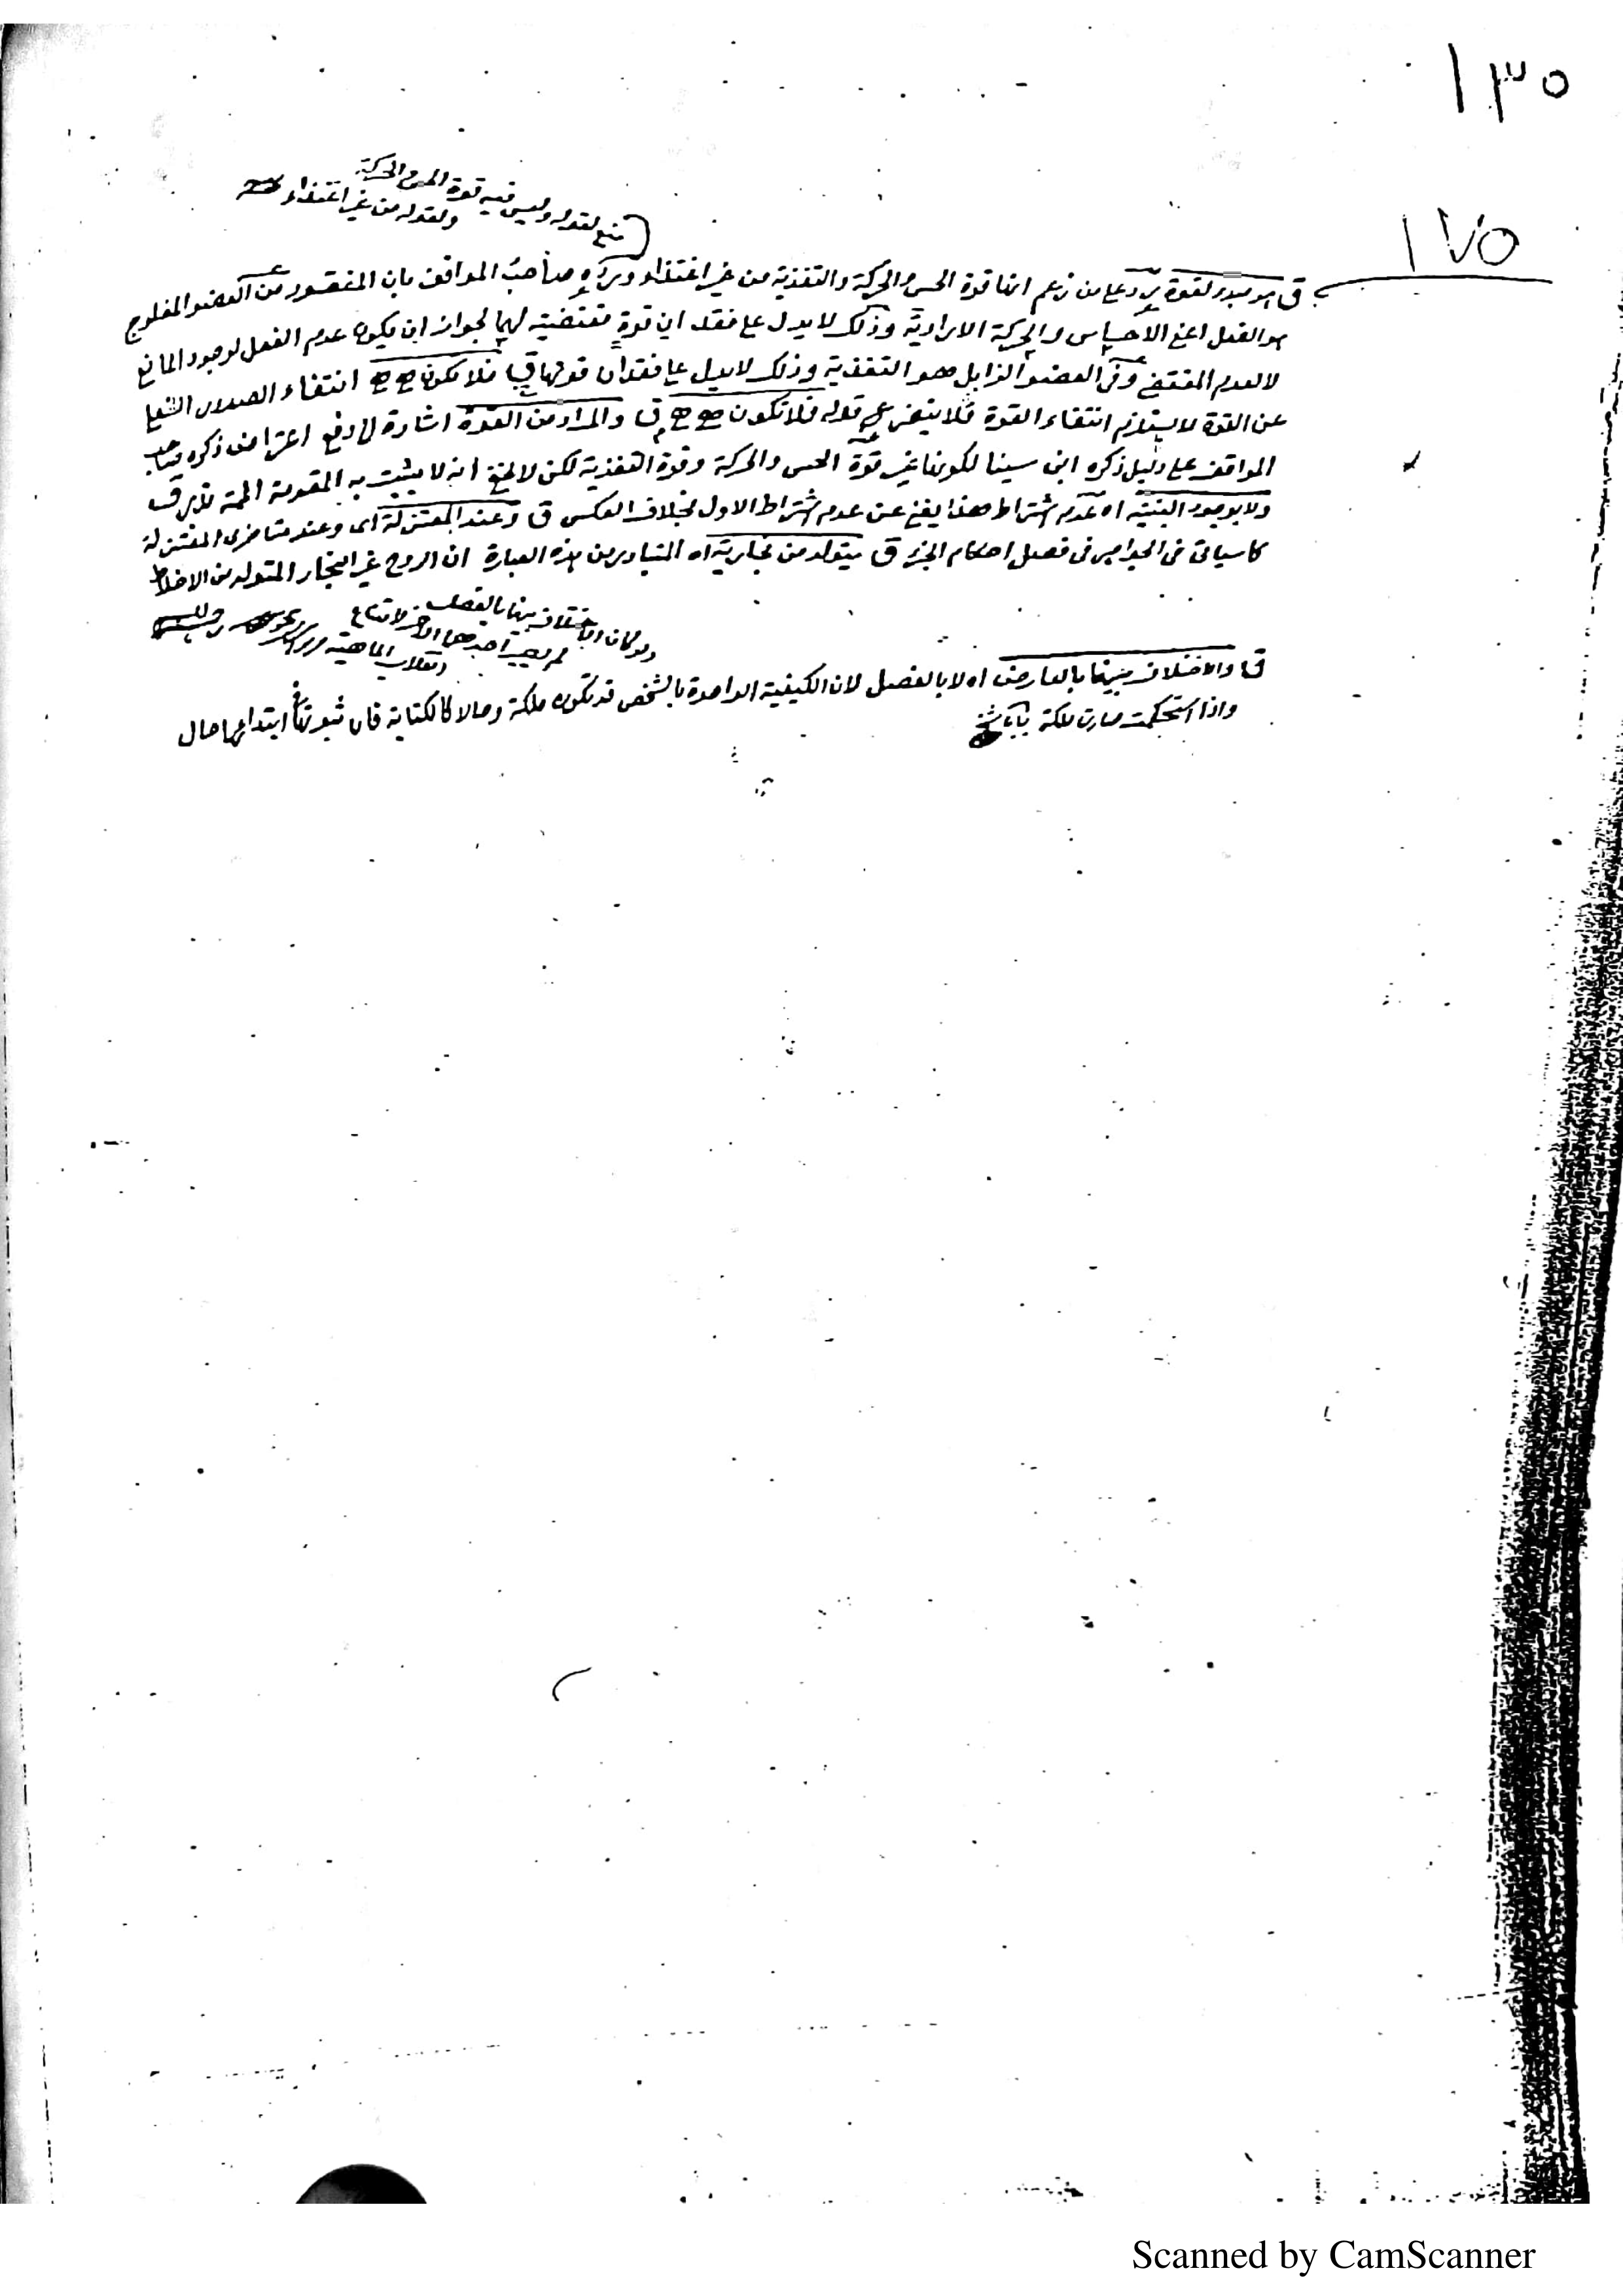 ١٣٠
١٧٥
منع لقوله وليس فيه قوة الحس والحركة
ولقوله من غير اغتذاء
ق هو مبدء لقوة رد على من زعم انها قوة الحس والحركة والتغذية من غير اغتذاء ورده صاحب المواقف بان المفقود عن العضو المفلوج
هو الفعل اعنى الاحساس والحركة الارادية وذلك لا يدل على فقد ان قوة مقتضية لهما لجواز ان يكون عدم الفعل لوجود المانع
لا لعدم المقتضى وفى العضو الذابل هو التغذية وذلك لا يدل على فقدان قوتها ق فلا تكون انتفاء الصدور الفعل
عن القوة لا يستلزم انتفاء القوة فلا يتفرع قوله فلا تكون ق والمراد من القوة اشارة الى دفع اعتراض ذكره صاحب
المواقف على دليل ذكره ابن سينا لكونها غير قوة الحس والحركة وقوة التغذية لكن لا يخفى انه لا يثبت به المقدمة الممنوعة ق
ولا بوجود البنية اه عدم اشتراط هذا يغنى عن عدم اشتراط الاول بخلاف العكس ق وعند المعتزلة اى وعند متأخرى المعتزلة
كما سيأتى فى الجواهر فى فصل احكام الجزء ق يتولد من بخارية اه المتبادر من هذه العبارة ان الروح غير البخار المتولد من الاخلاط
ولو كان الاختلاف بينهما بالفصل
لم يصر احدهما الآخر لامتناع
انقلاب الماهية
ق والاختلاف بينهما بالعارض اه لا بالفصل لان الكيفية الواحدة بالشخص قد تكون ملكة وحالا كالكتابة فان ثبوتها فى ابتدائها حال
واذا استحكمت صارت ملكة
Scanned by CamScanner